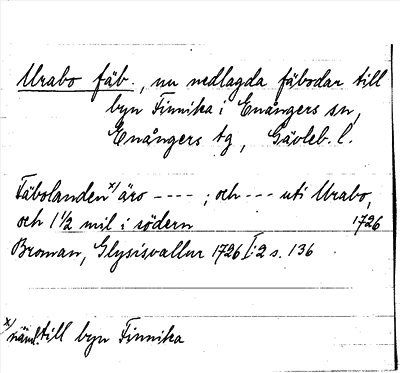 Urabo fäb., nu nedlagda fäbodar till
byn Finnika i Enångers sn,
Enångers tg, Gävleb. l.
Fäbolanden x/ äro ---- ; och --- uti Urabo,
och 1 1/2 mil i södern 1726
Broman, Glysisvallur 1726 I:2 s. 136
x/ näml. till byn Finnika